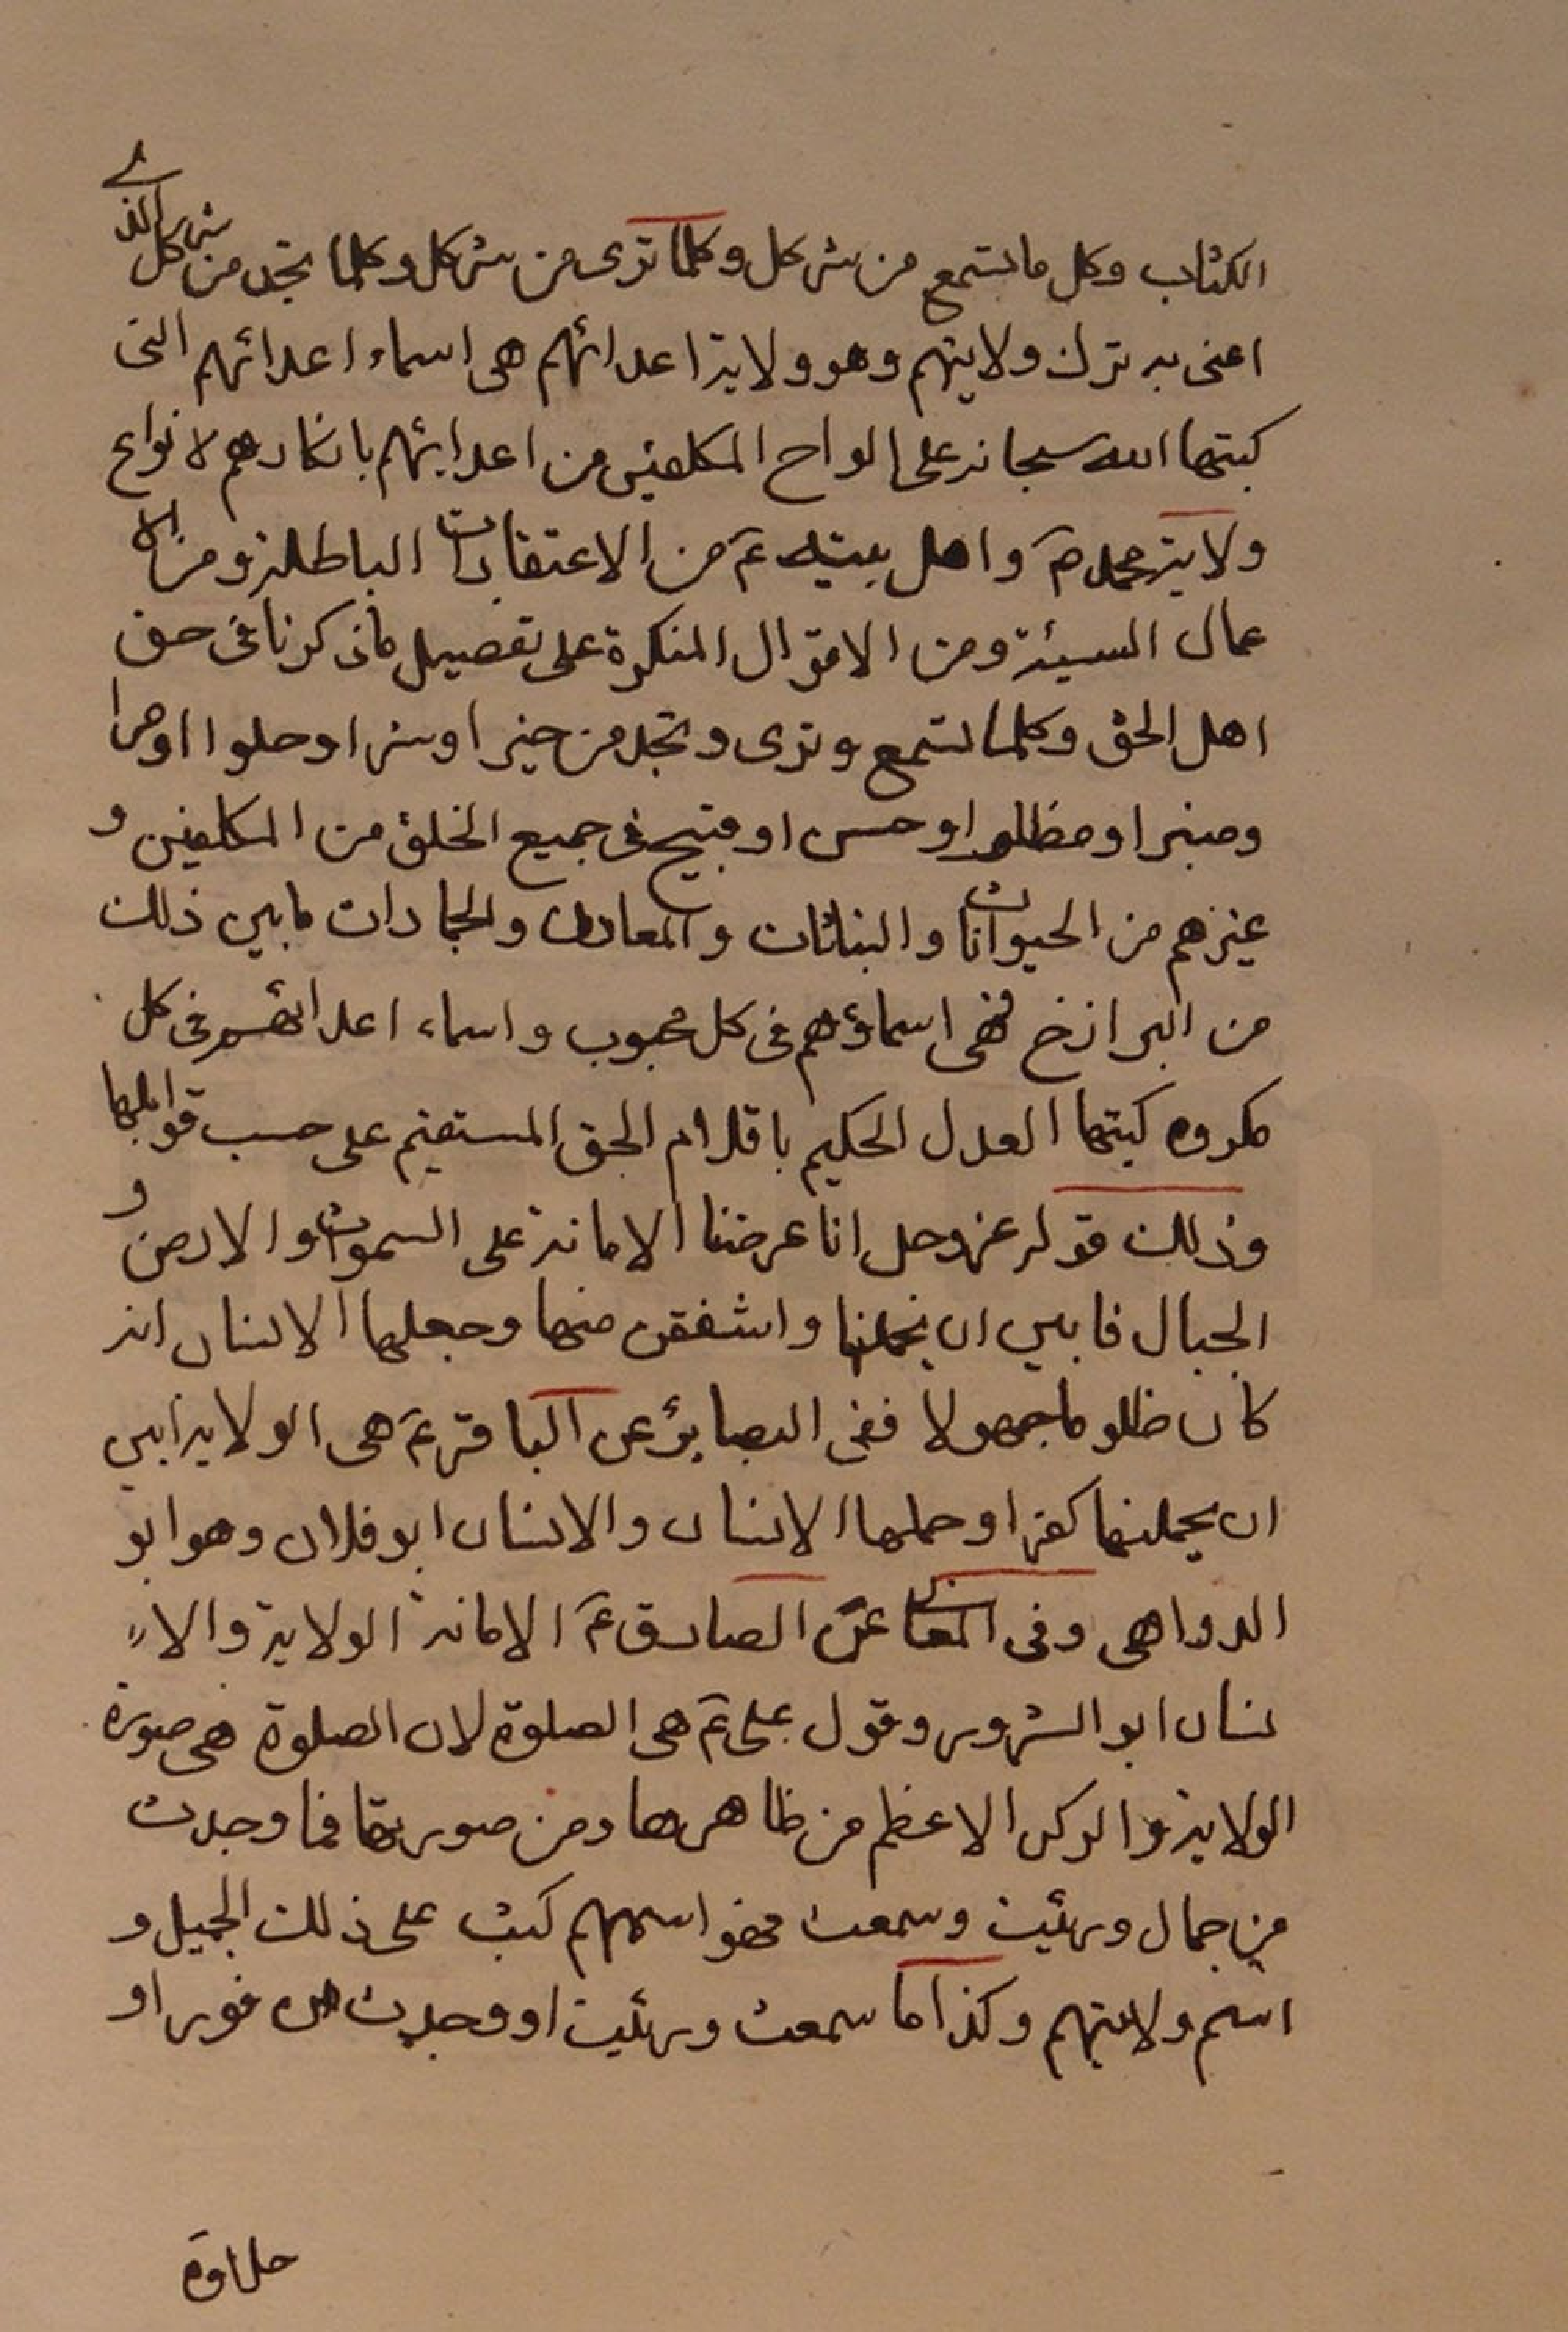 الكتاب وكل ما تسمع من شر كل وكلما ترى من شر كل وكلما تجد من شر كل الذی
اعنى به ترك ولايتهم وهو ولاية اعدائهم هى اسماء اعدائهم التى
كتبها الله سبحانه على الواح المكلفين من اعدائهم بانكارهم لانواع
ولاية محمد ص واهل بيته ع من الاعتقادات الباطلة ومن الا
عمال السيئة ومن الاقوال المنكرة على تفصيل ما ذكرنا فى حق
اهل الحق وكلما تسمع وترى وتجد من خير او شر او حلوا او مرا
ومنير او مظلم او حسن او قبيح فى جميع الخلق من المكلفين و
غيرهم من الحيوانات والنباتات والمعادن والجمادات ما بين ذلك
من البرازخ فهى اسماؤهم فى كل محبوب واسماء اعدائهم فى كل
مكروه كتبها العدل الحكيم باقلام الحق المستقيم على حسب قوابلها
وذلك قوله عز وجل انا عرضنا الامانة على السموات والارض و
الجبال فابين ان يحملنها واشفقن منها وحملها الانسان انه
كان ظلوما جهولا ففى البصائر عن الباقر ع هى الولاية ابين
ان يحملنها كفرا وحملها الانسان والانسان ابو فلان وهو ابو
الدواهى وفى المعانى عن الصادق ع الامانة الولاية والا
نسان ابو الشرور وقول على ع هى الصلوة لان الصلوة هى صورة
الولاية والركن الاعظم من ظاهرها ومن صورتها فما وجدت
من جمال ورئيت وسمعت فهو اسمهم كتب على ذلك الجميل و
اسم ولايتهم وكذا ما سمعت ورئيت او وجدت من نور او
حلاوة